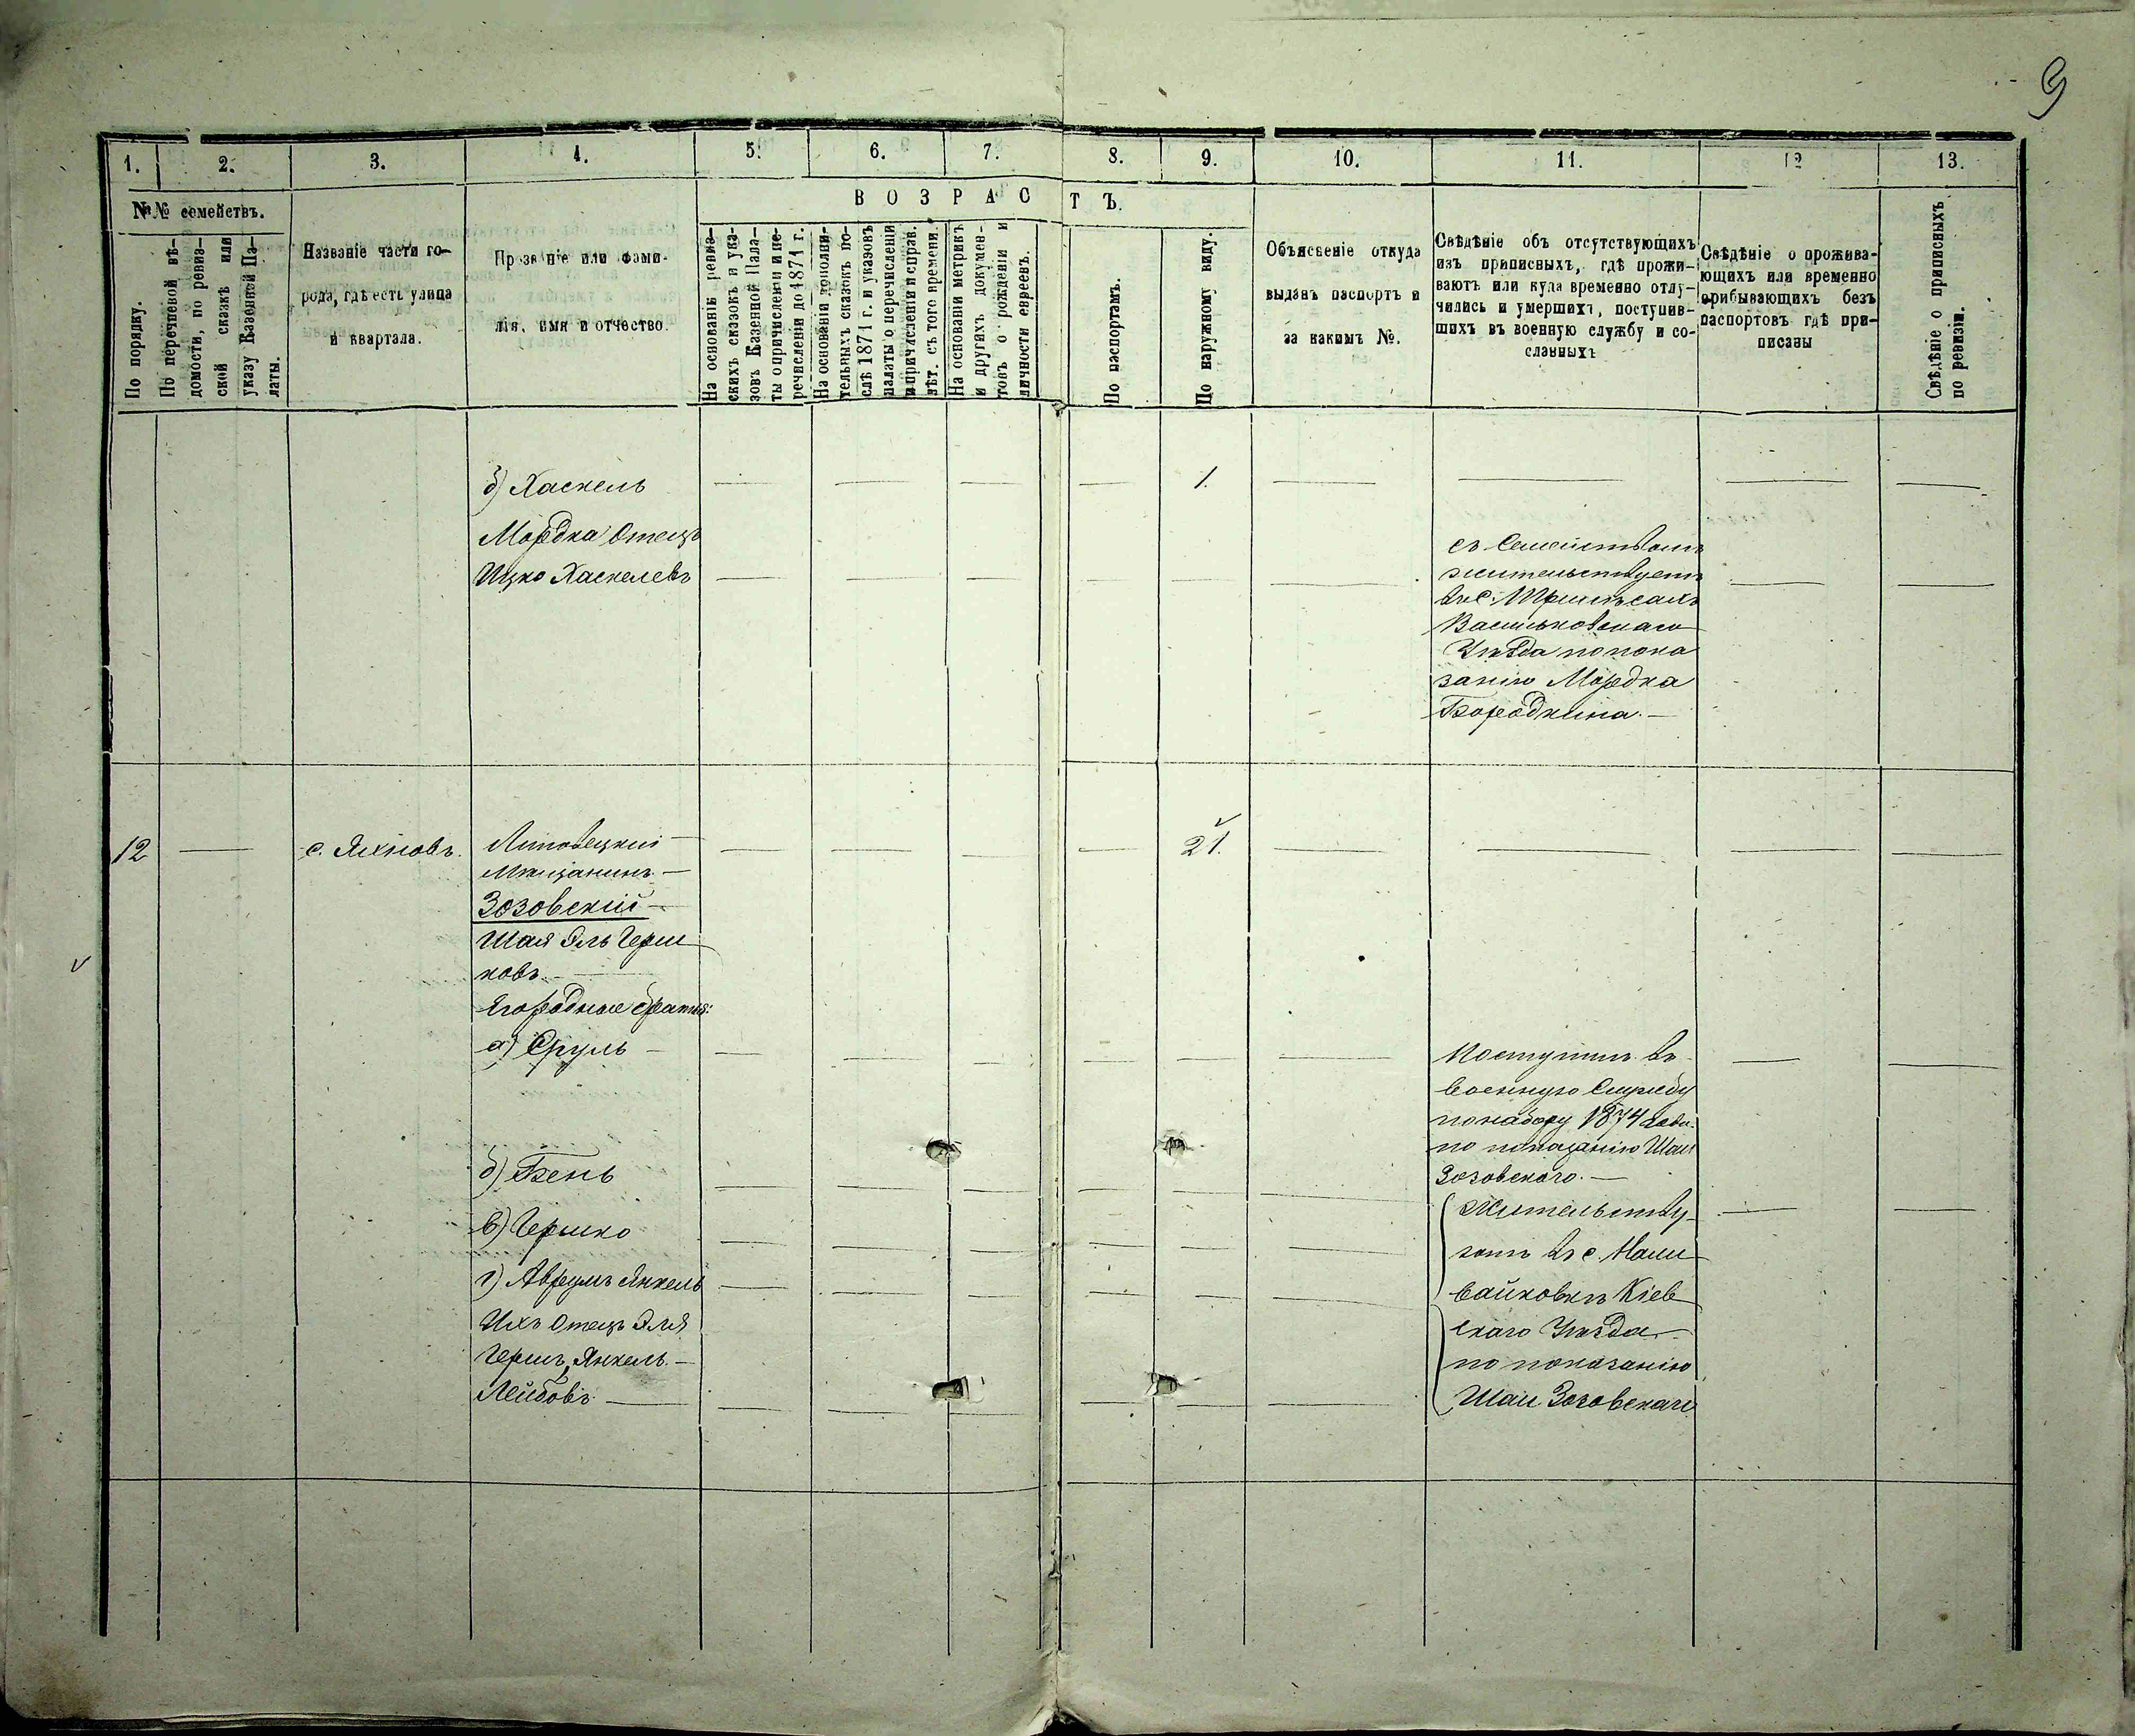 9
1. 2. 3. 4. 5. 6. 7. 8. 9. 10. 11. 12 13.
№№ семействъ.
ВОЗРАСТЪ.
По порядку.
По перечневой вѣ-
домости, по ревиз-
ской сказкѣ или
указу Казенной Па-
латы.
Названіе части го-
рода, гдѣ есть улица
и квартала.
Прозваніе или фами-
лія, имя и отчество.
На основаніи ревиз-
скихъ сказокъ и ука-
зовъ Казенной Пала-
ты о причисленіи и пе-
речисленіи до 1871 г.
На основаніи дополни-
тельныхъ сказокъ по-
слѣ 1871 г. и указовъ
палаты о перечисленіи
и причисленіи и справ.
лѣт. съ того времени.
На основаніи метрикъ
и другихъ докумен-
товъ о рожденіи и
личности евреевъ.
По паспортамъ.
По наружному виду.
Объясненіе откуда
выданъ паспортъ и
за какимъ №.
Свѣдѣніе объ отсутствующихъ
изъ приписныхъ, гдѣ прожи-
ваютъ или куда временно отлу-
чились и умершихъ, поступив-
шихъ въ военную службу и со-
сланныхъ
Свѣдѣніе о прожива-
ющихъ или временно
прибывающихъ безъ
паспортовъ гдѣ при-
писаны
Свѣдѣніе о приписныхъ
по ревизіи.
б) Хаскель
1.
Мордка Отецъ
Ицко Хаскелевъ
съ Семействомъ
жительствуетъ
въ с.
Васильковскаго
Уѣзда по пока
занію Мордка
Бородкина.
12
с. Яхновъ.
Липовецкій
Мѣщанинъ
Зозовскій
Шая Эль Герш
ковъ
21.
Его родные братья:
а) Сруль
Поступилъ въ
военную Службу
по набору 1874 года
по показанію Шаи
Зозовскаго.
б) Бень
в) Гершко
г) Аврумъ Янкель
Ихъ Отецъ Эля
Гершъ, Янкель
Лейбовъ
Жительству
ютъ въ с. Нали
вайковкѣ Кіев
скаго Уѣзда
по показанію
Шаи Зозовскаго